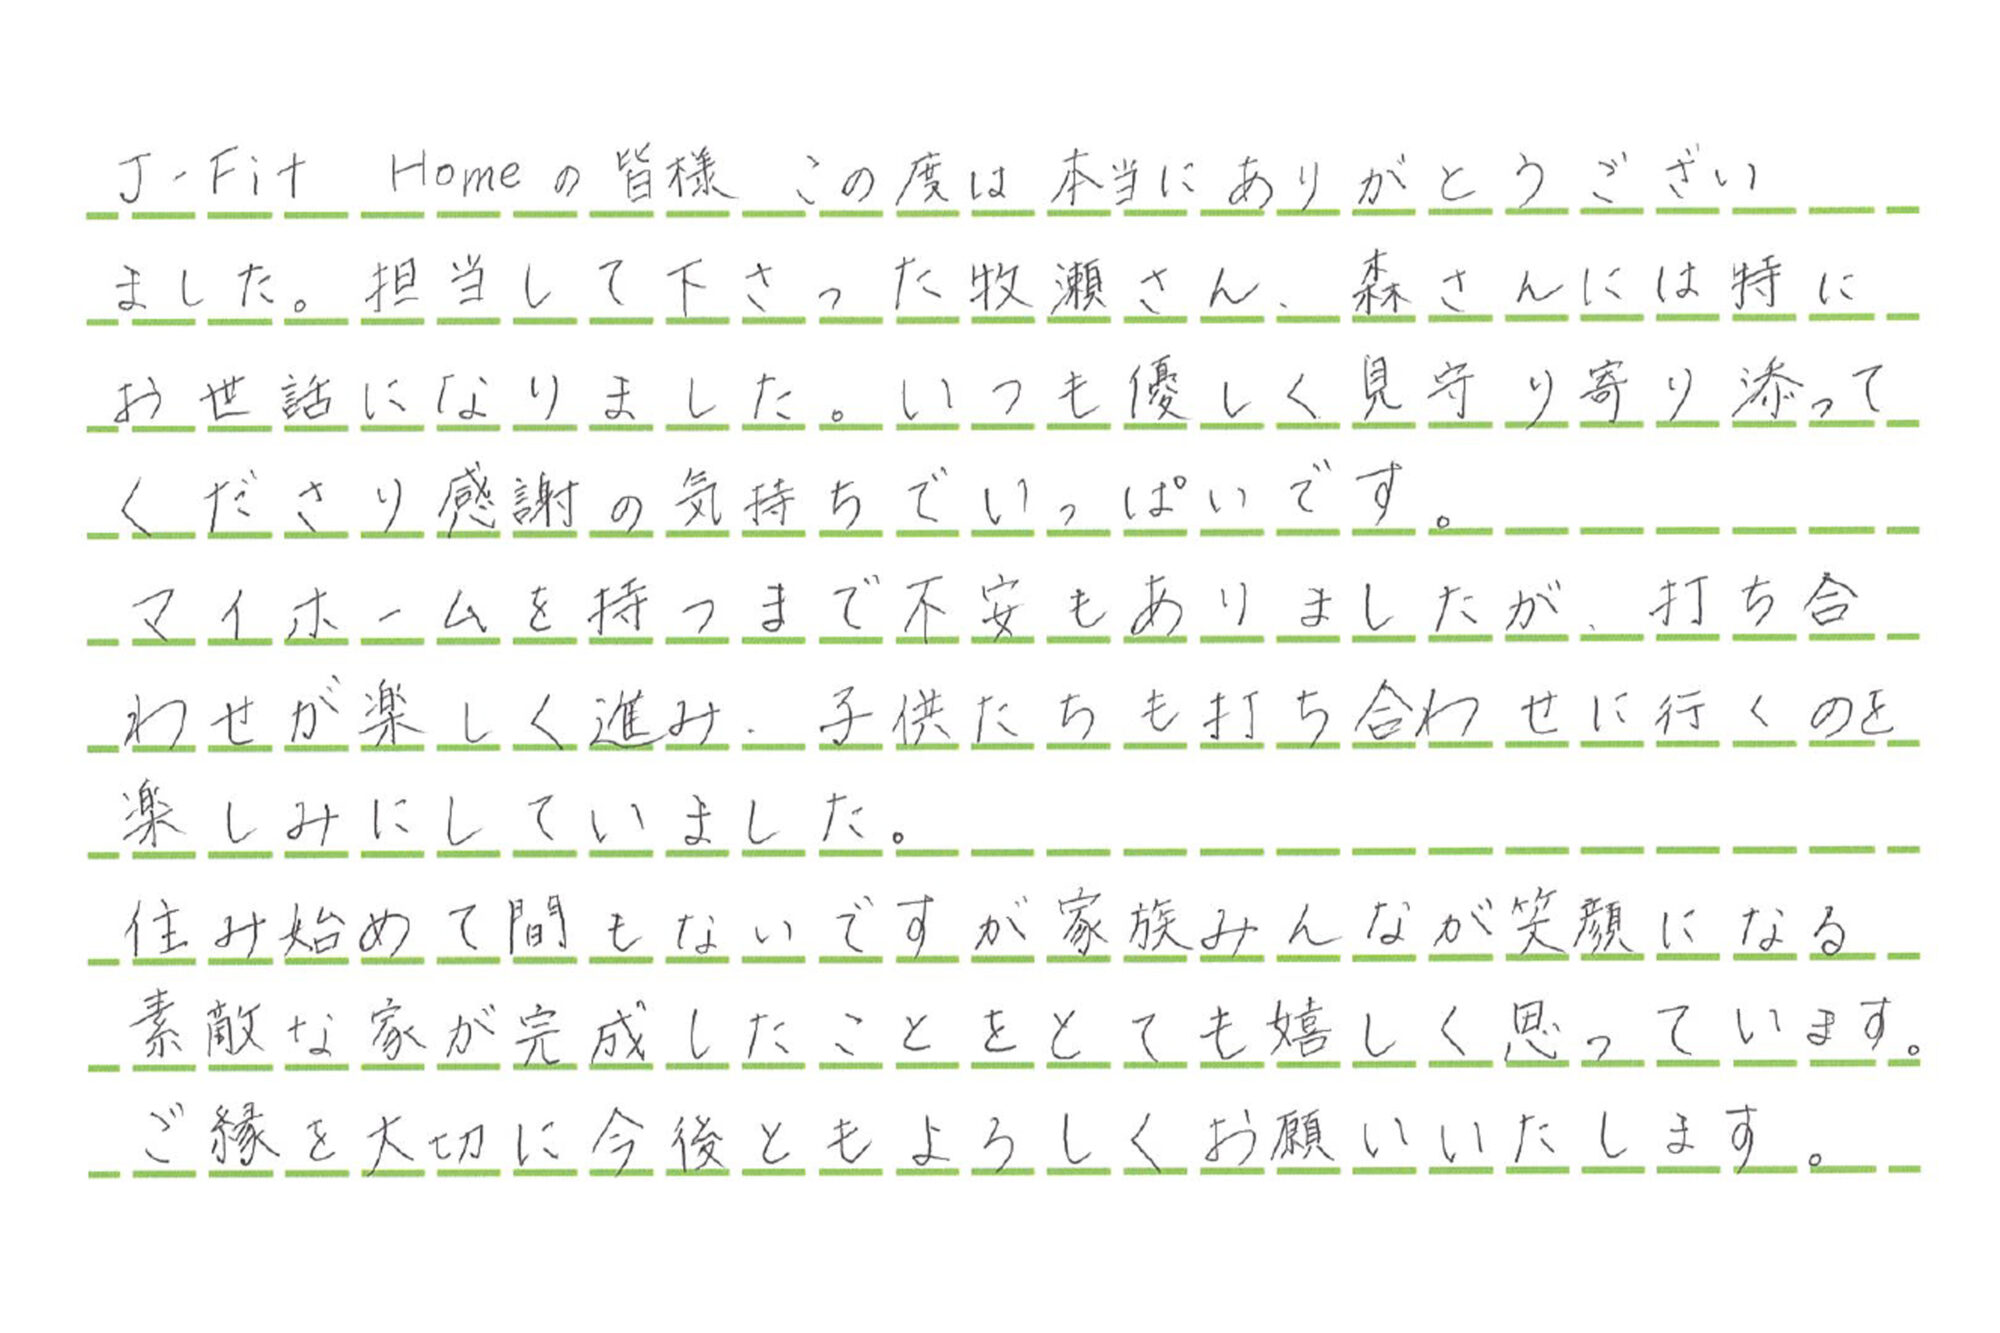 J-Fit Homeの皆様 この度は本当にありがとうござい
ました。担当して下さった牧瀬さん、森さんには特に
お世話になりました。いつも優しく見守り寄り添って
くださり感謝の気持ちでいっぱいです。
マイホームを持つまで不安もありましたが、打ち合
わせが楽しく進み、子供たちも打ち合わせに行くのを
楽しみにしていました。
住み始めて間もないですが家族みんなが笑顔になる
素敵な家が完成したことをとても嬉しく思っています。
ご縁を大切に今後ともよろしくお願いいたします。